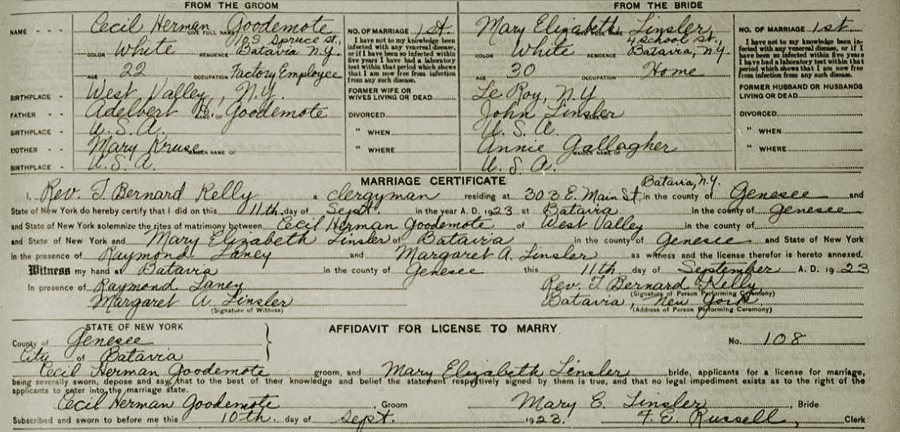 FROM THE GROOM FROM THE BRIDE
NAME Cecil Herman Goodemote NO. OF MARRIAGE 1st. Mary Elizabeth Linsler NO. OF MARRIAGE 1st.
GIVE FULL NAME 103 Spruce St., 4 School St.,
COLOR White RESIDENCE Batavia N.Y. COLOR White RESIDENCE Batavia, N.Y.
I have not to my knowledge been infected with any venereal disease, or if I have been so infected within five years I have had a laboratory test within that period which shows that I am now free from infection from any such disease.
I have not to my knowledge been infected with any venereal disease, or if I have been so infected within five years I have had a laboratory test within that period which shows that I am now free from infection from any such disease.
AGE 22 OCCUPATION Factory Employee AGE 30 OCCUPATION Home
BIRTHPLACE West Valley, N.Y. FORMER WIFE OR WIVES LIVING OR DEAD Le Roy, N.Y. FORMER HUSBAND OR HUSBANDS LIVING OR DEAD
FATHER Adelbert H. Goodemote DIVORCED John Linsler DIVORCED
BIRTHPLACE U.S.A. " WHEN U.S.A. " WHEN
MOTHER Mary Kruse MAIDEN NAME OF " WHERE Annie Gallagher MAIDEN NAME OF " WHERE
BIRTHPLACE U.S.A. U.S.A.
MARRIAGE CERTIFICATE
I, Rev. T. Bernard Kelly a clergyman residing at 303 E. Main St., Batavia, N.Y. in the county of Genesee and
State of New York do hereby certify that I did on this 11th day of Sept. in the year A. D. 1923 at Batavia in the county of Genesee
and State of New York solemnize the rites of matrimony between Cecil Herman Goodemote of West Valley in the county of
and State of New York and Mary Elizabeth Linsler of Batavia in the county of Genesee and State of New York
in the presence of Raymond Laney and Margaret A. Linsler as witness and the license therefor is hereto annexed.
Witness my hand at Batavia in the county of Genesee this 11th day of September A. D. 1923
In presence of Raymond Laney Rev. T. Bernard Kelly
(Signature of Person Performing Ceremony)
Margaret A. Linsler Batavia, New York.
(Signature of Witness) (Address of Person Performing Ceremony)
STATE OF NEW YORK AFFIDAVIT FOR LICENSE TO MARRY
County of Genesee No. 108
City of Batavia
Cecil Herman Goodemote groom, and Mary Elizabeth Linsler bride, applicants for a license for marriage,
being severally sworn, depose and say, that to the best of their knowledge and belief the statement respectively signed by them is true, and that no legal impediment exists as to the right of the
applicants to enter into the marriage state.
Cecil Herman Goodemote Groom Mary E. Linsler Bride
Subscribed and sworn to before me this 10th. day of Sept. 1923. F. E. Russell, Clerk